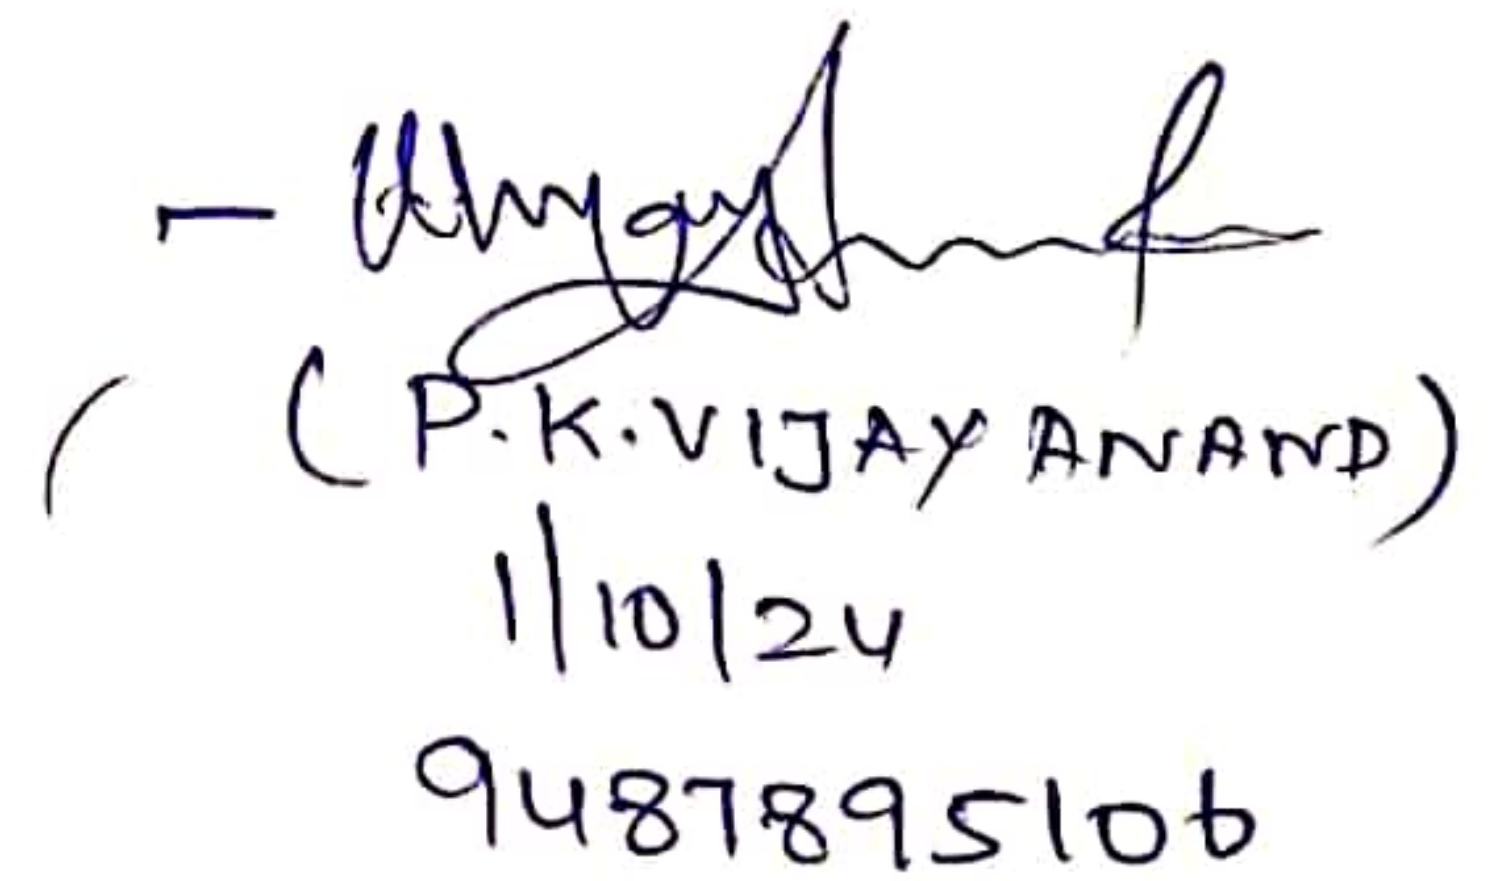 (P.K.VIJAY ANAND)
1/10/24
9487895106